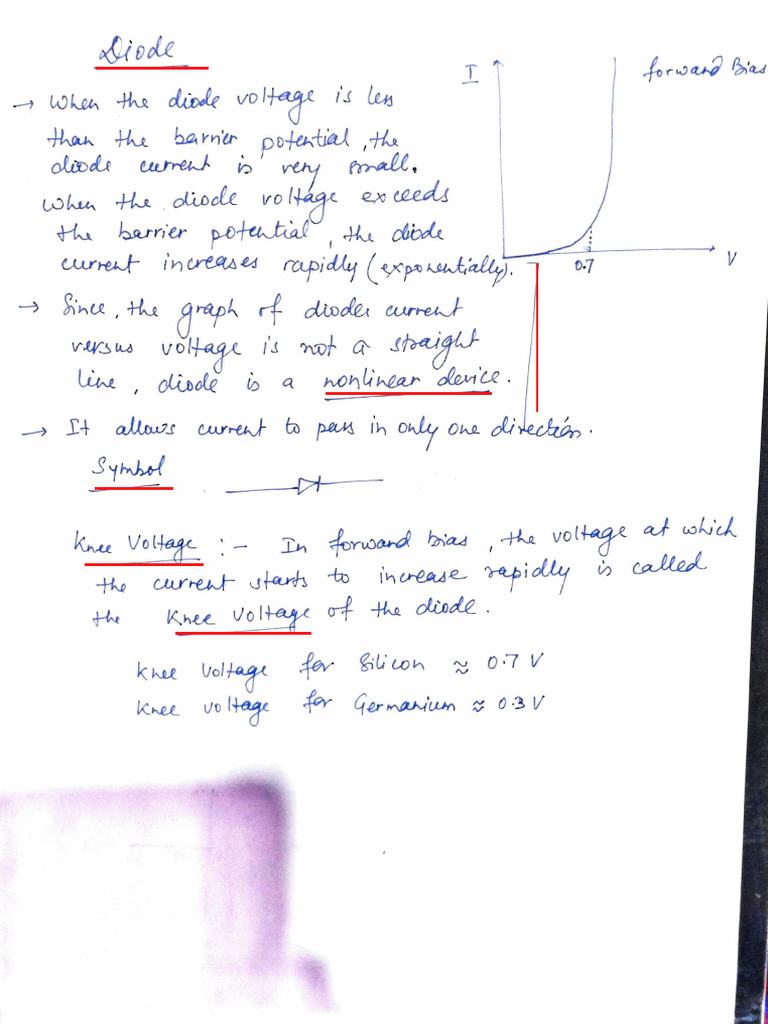 Diode
→ When the diode voltage is less
than the barrier potential, the
diode current is very small.
When the diode voltage exceeds
the barrier potential, the diode
current increases rapidly (exponentially).
I
forward Bias
0.7
V
→ Since, the graph of diodes current
versus voltage is not a straight
line, diode is a nonlinear device.
→ It allows current to pass in only one direction.
Symbol
Knee Voltage :- In forward bias, the voltage at which
the current starts to increase rapidly is called
the Knee Voltage of the diode.
Knee Voltage for Silicon ≈ 0.7 V
Knee Voltage for Germanium ≈ 0.3 V